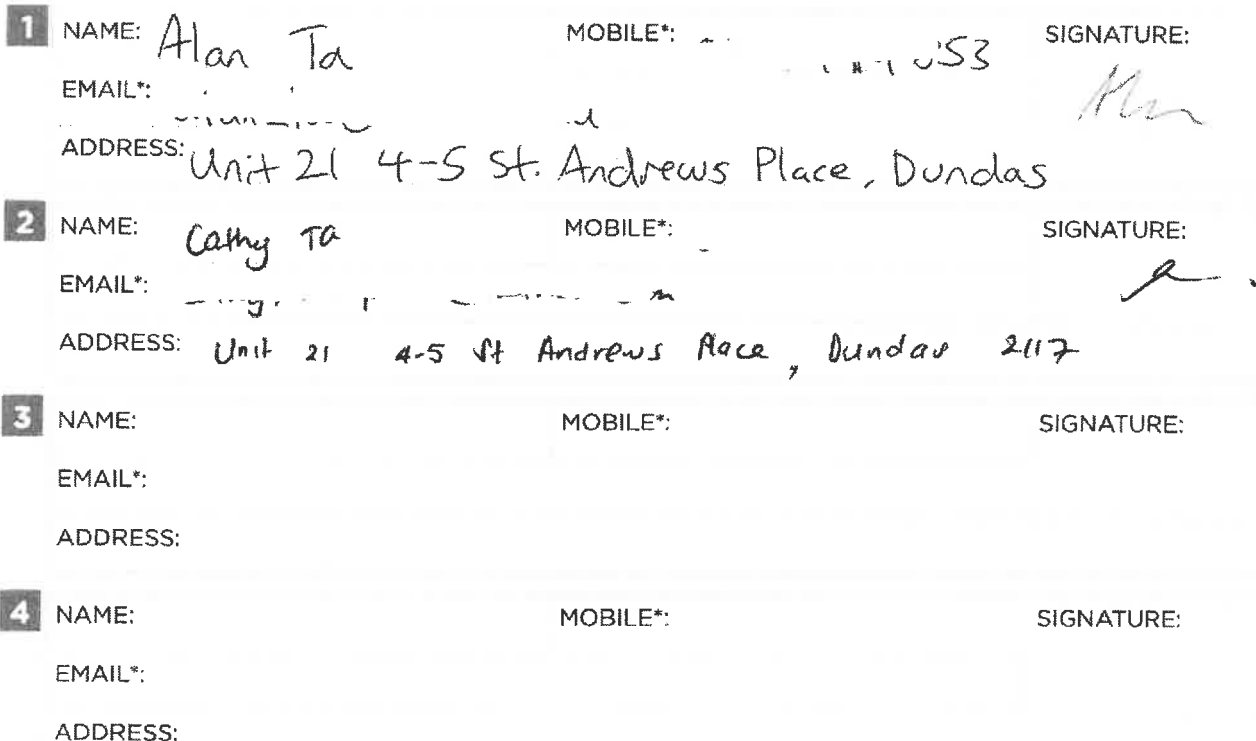 1 NAME: Alan Ta MOBILE*: 53 SIGNATURE:
EMAIL*:
ADDRESS: Unit 21 4-5 St. Andrews Place, Dundas
2 NAME: Cathy Ta MOBILE*: SIGNATURE:
EMAIL*:
ADDRESS: Unit 21 4-5 St Andrews Place, Dundas 2117
3 NAME: MOBILE*: SIGNATURE:
EMAIL*:
ADDRESS:
4 NAME: MOBILE*: SIGNATURE:
EMAIL*:
ADDRESS: